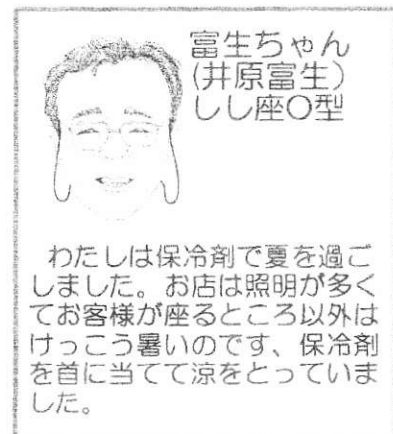 富生ちゃん
(井原富生)
しし座O型
わたしは保冷剤で夏を過ご
しました。お店は照明が多く
てお客様が座るところ以外は
けっこう暑いのです、保冷剤
を首に当てて涼をとっていま
した。